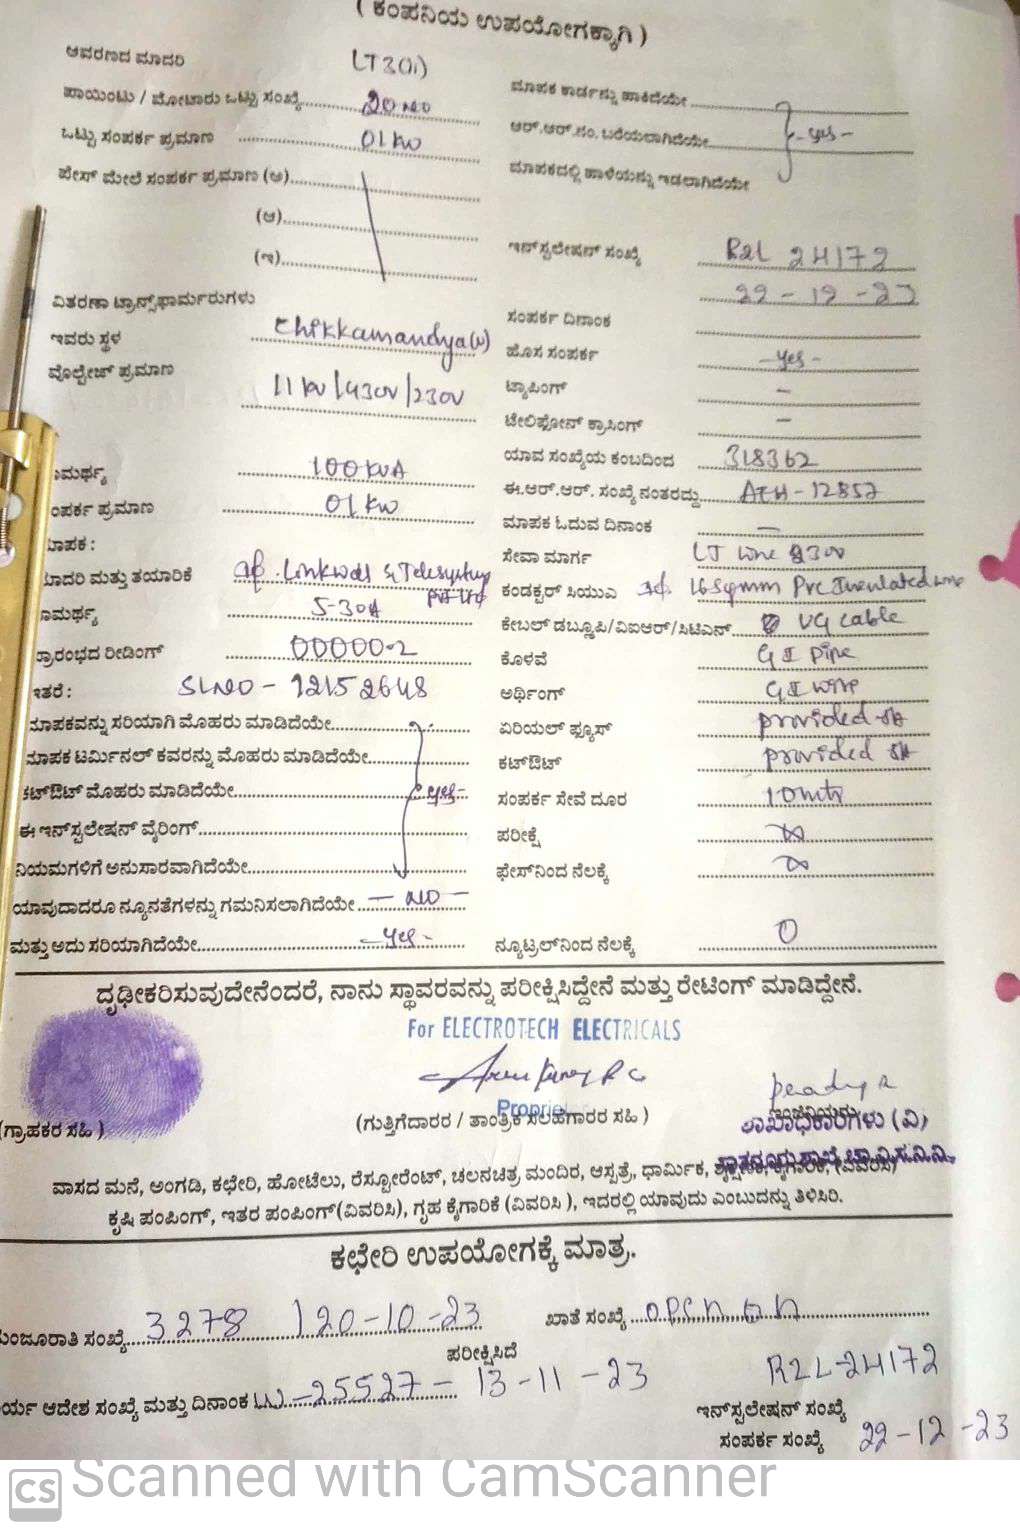 ( ಕಂಪನಿಯ ಉಪಯೋಗಕ್ಕಾಗಿ )
ಆವರಣದ ಮಾದರಿ LT3(i)
ಪಾಯಿಂಟು / ಮೋಟಾರು ಒಟ್ಟು ಸಂಖ್ಯೆ 20 NO
ಒಟ್ಟು ಸಂಪರ್ಕ ಪ್ರಮಾಣ 01 KW
ಪೇಸ್ ಮೇಲೆ ಸಂಪರ್ಕ ಪ್ರಮಾಣ (ಅ)
(ಆ)
(ಇ)
ವಿತರಣಾ ಟ್ರಾನ್ಸ್‌ಫಾರ್ಮರುಗಳು
ಇವರು ಸ್ಥಳ Chikkamandya(v)
ವೊಲ್ಟೇಜ್ ಪ್ರಮಾಣ 11 KV/430V/230V
ಾಮರ್ಥ್ಯ 100 KVA
ಂಪರ್ಕ ಪ್ರಮಾಣ 01 KW
ಮಾಪಕ :
ಮಾದರಿ ಮತ್ತು ತಯಾರಿಕೆ Linkwell Telesystems Pvt Ltd
ಾಮರ್ಥ್ಯ 5-30A
ಪ್ರಾರಂಭದ ರೀಡಿಂಗ್ 00000-2
ಇತರೆ : SLNO - 12152648
ಮಾಪಕವನ್ನು ಸರಿಯಾಗಿ ಮೊಹರು ಮಾಡಿದೆಯೇ
ಮಾಪಕ ಟರ್ಮಿನಲ್ ಕವರನ್ನು ಮೊಹರು ಮಾಡಿದೆಯೇ
ಕಟ್‌ಔಟ್ ಮೊಹರು ಮಾಡಿದೆಯೇ yes-
ಈ ಇನ್‌ಸ್ಟಲೇಷನ್ ವೈರಿಂಗ್
ನಿಯಮಗಳಿಗೆ ಅನುಸಾರವಾಗಿದೆಯೇ
ಯಾವುದಾದರೂ ನ್ಯೂನತೆಗಳನ್ನು ಗಮನಿಸಲಾಗಿದೆಯೇ - NO -
ಮತ್ತು ಅದು ಸರಿಯಾಗಿದೆಯೇ - yes -
ಮಾಪಕ ಕಾರ್ಡನ್ನು ಹಾಕಿದೆಯೇ
ಆರ್.ಆರ್.ನಂ. ಬರೆಯಲಾಗಿದೆಯೇ - yes -
ಮಾಪಕದಲ್ಲಿ ಹಾಳೆಯನ್ನು ಇಡಲಾಗಿದೆಯೇ
ಇನ್‌ಸ್ಟಲೇಷನ್ ಸಂಖ್ಯೆ R2L 24172
22-12-23
ಸಂಪರ್ಕ ದಿನಾಂಕ
ಹೊಸ ಸಂಪರ್ಕ - yes -
ಟ್ಯಾಪಿಂಗ್ -
ಟೇಲಿಫೋನ್ ಕ್ರಾಸಿಂಗ್ -
ಯಾವ ಸಂಖ್ಯೆಯ ಕಂಬದಿಂದ 318362
ಈ.ಆರ್.ಆರ್. ಸಂಖ್ಯೆ ನಂತರದ್ದು AEH-12852
ಮಾಪಕ ಓದುವ ದಿನಾಂಕ -
ಸೇವಾ ಮಾರ್ಗ LT line 230V
ಕಂಡಕ್ಟರ್ ಸಿಯುಎ 16 sqmm Pvc Insulated wire
ಕೇಬಲ್ ಡಬ್ಲ್ಯೂಪಿ/ವಿಐಆರ್/ಸಿಟಿಎನ್ UG cable
ಕೊಳವೆ GI pipe
ಅರ್ಥಿಂಗ್ GI wire
ಏರಿಯಲ್ ಫ್ಯೂಸ್ provided 5A
ಕಟ್‌ಔಟ್ provided 5A
ಸಂಪರ್ಕ ಸೇವೆ ದೂರ 10mtr
ಪರೀಕ್ಷೆ
ಫೇಸ್‌ನಿಂದ ನೆಲಕ್ಕೆ ∞
ನ್ಯೂಟ್ರಲ್‌ನಿಂದ ನೆಲಕ್ಕೆ 0
ದೃಢೀಕರಿಸುವುದೇನೆಂದರೆ, ನಾನು ಸ್ಥಾವರವನ್ನು ಪರೀಕ್ಷಿಸಿದ್ದೇನೆ ಮತ್ತು ರೇಟಿಂಗ್ ಮಾಡಿದ್ದೇನೆ.
For ELECTROTECH ELECTRICALS
Proprietor
(ಗ್ರಾಹಕರ ಸಹಿ )
(ಗುತ್ತಿಗೆದಾರರ / ತಾಂತ್ರಿಕ ಸಲಹೆಗಾರರ ಸಹಿ )
ಶಾಖಾಧಿಕಾರಿಗಳು (ವಿ)
ವಾಸದ ಮನೆ, ಅಂಗಡಿ, ಕಛೇರಿ, ಹೋಟೆಲು, ರೆಸ್ಟೋರೆಂಟ್, ಚಲನಚಿತ್ರ ಮಂದಿರ, ಆಸ್ಪತ್ರೆ, ಧಾರ್ಮಿಕ,
ಕೃಷಿ ಪಂಪಿಂಗ್, ಇತರ ಪಂಪಿಂಗ್(ವಿವರಿಸಿ), ಗೃಹ ಕೈಗಾರಿಕೆ (ವಿವರಿಸಿ ), ಇದರಲ್ಲಿ ಯಾವುದು ಎಂಬುದನ್ನು ತಿಳಿಸಿರಿ.
ಕಛೇರಿ ಉಪಯೋಗಕ್ಕೆ ಮಾತ್ರ.
ಮಂಜೂರಾತಿ ಸಂಖ್ಯೆ 3278 / 20-10-23 ಖಾತೆ ಸಂಖ್ಯೆ
ಪರೀಕ್ಷಿಸಿದೆ
ರ್ಯ ಆದೇಶ ಸಂಖ್ಯೆ ಮತ್ತು ದಿನಾಂಕ W-25527 - 13-11-23 R2L-24172
ಇನ್‌ಸ್ಟಲೇಷನ್ ಸಂಖ್ಯೆ
ಸಂಪರ್ಕ ಸಂಖ್ಯೆ 22-12-23
CS Scanned with CamScanner